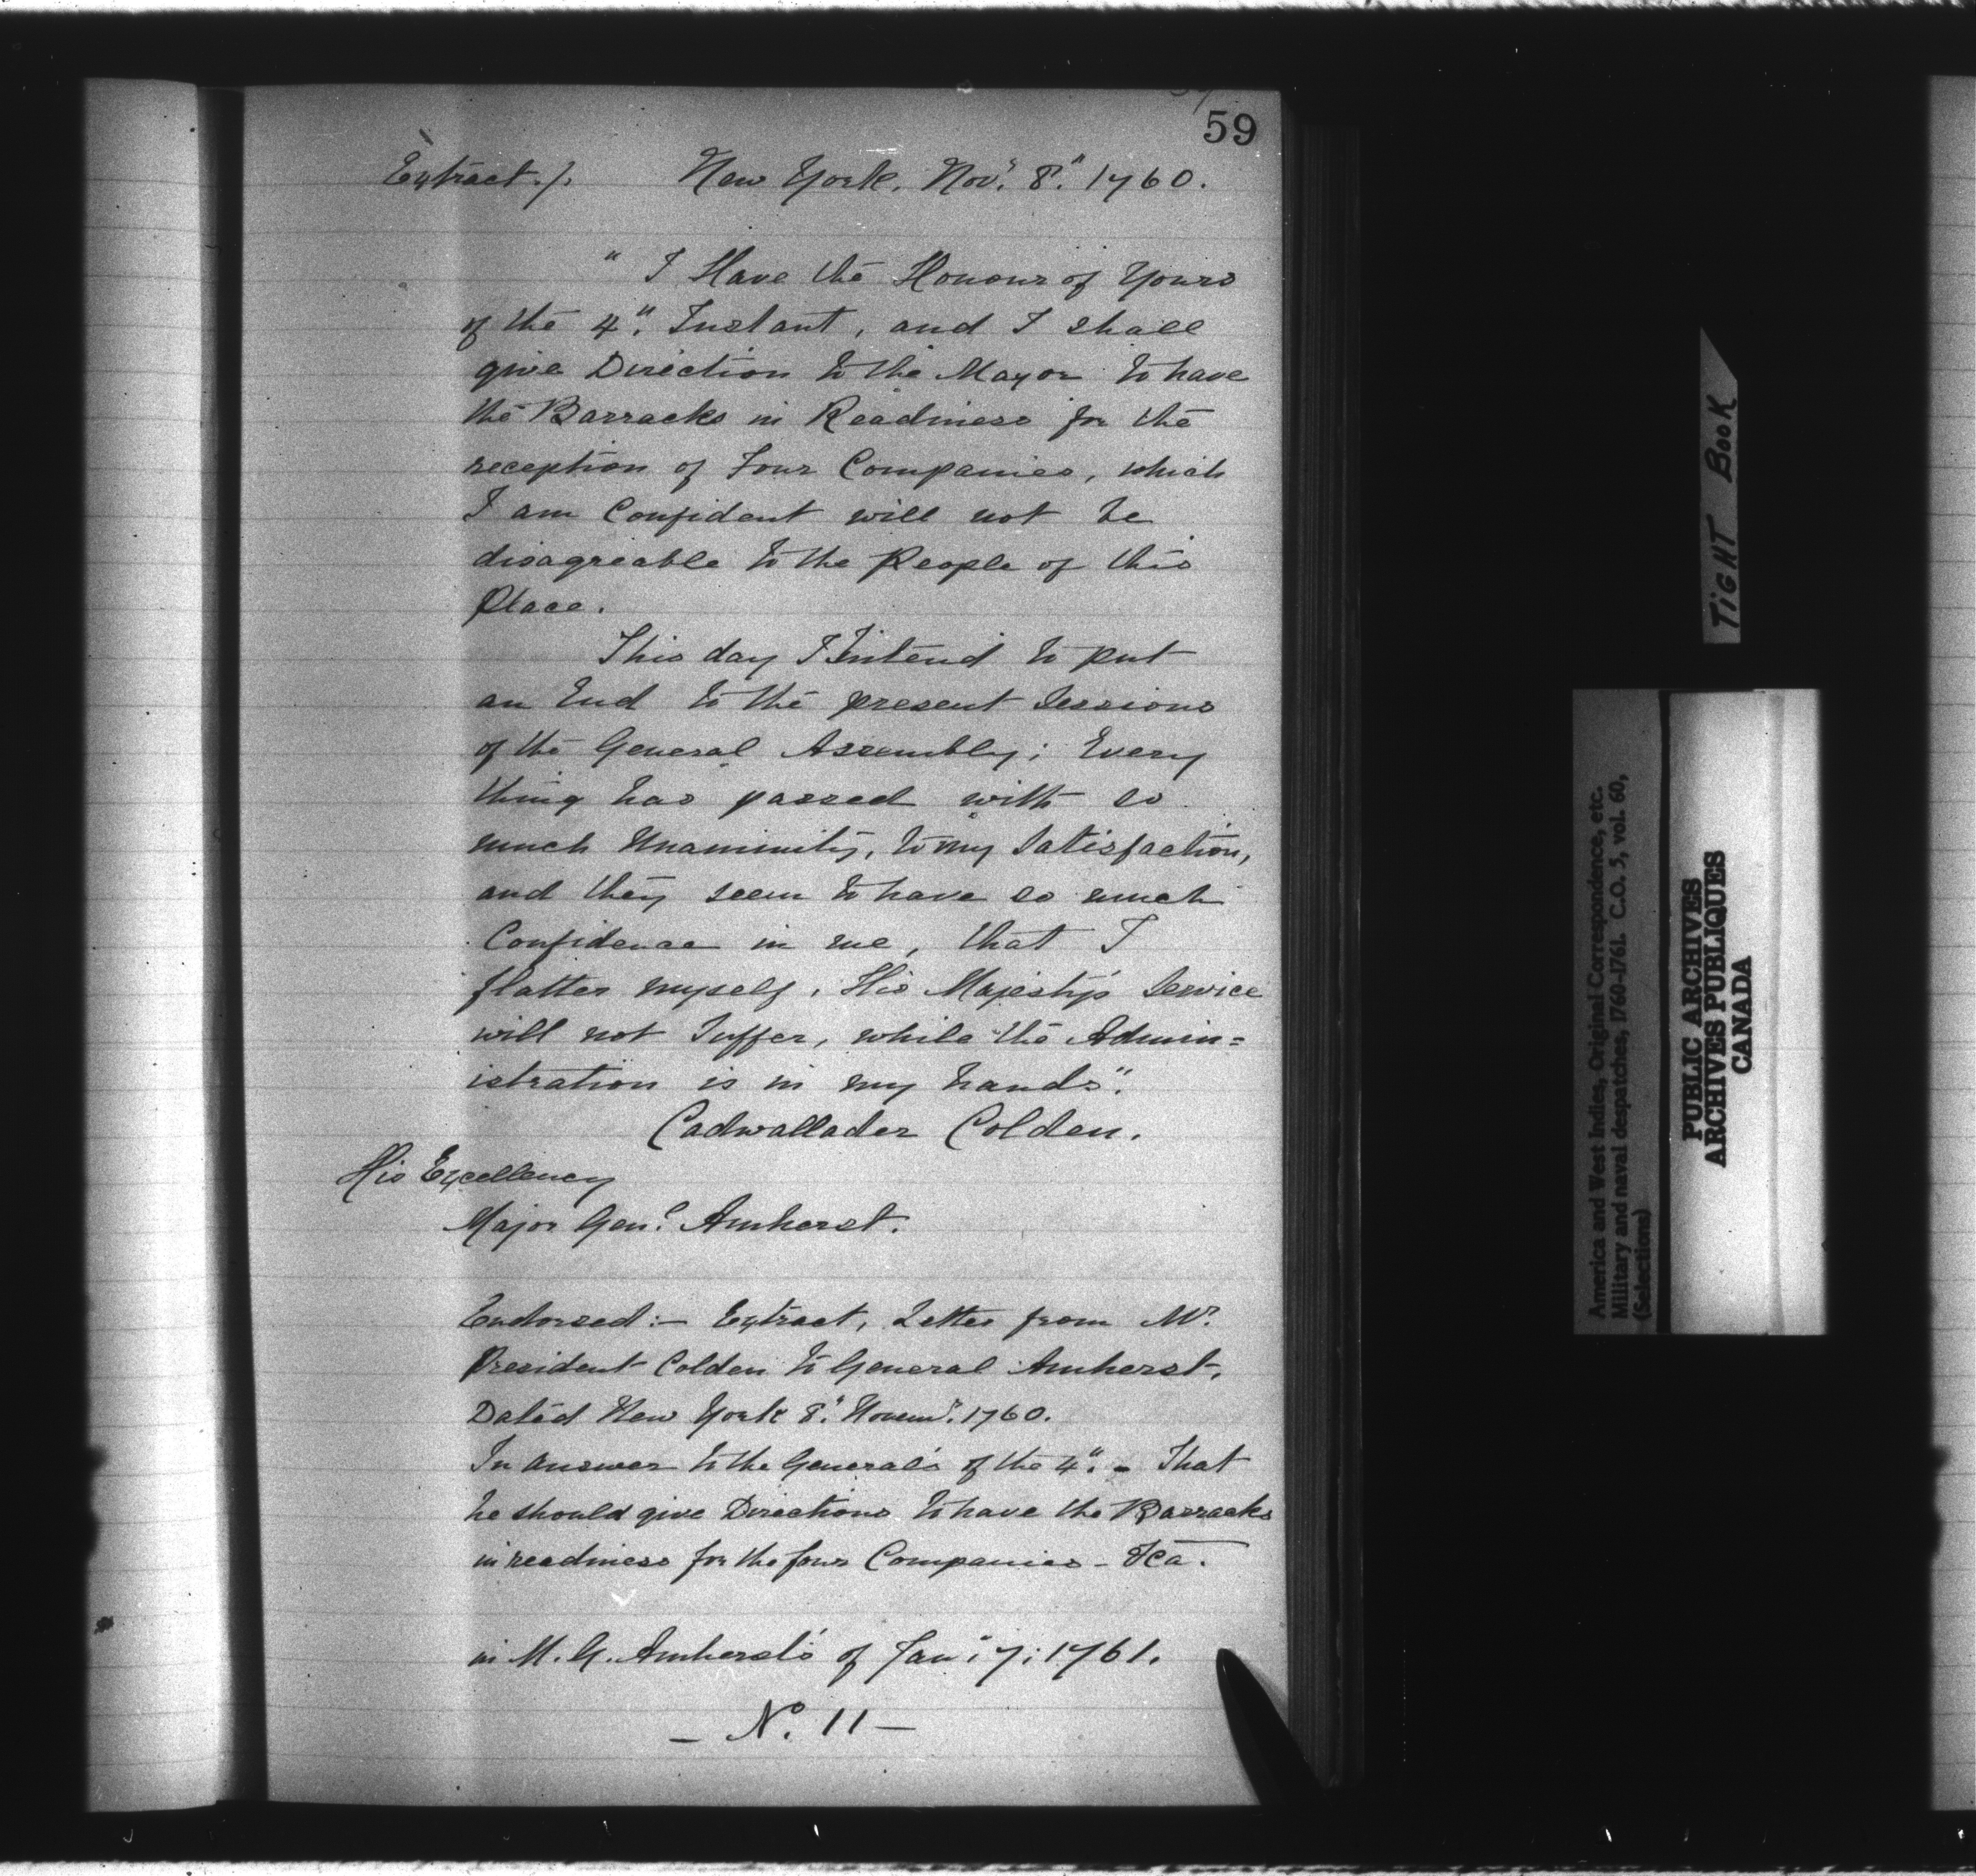 59
Extract./. New York, Nov.r 8.th 1760.
" I Have the Honour of Yours
of the 4." Instant, and I shall
give Direction to the Mayor to have
the Barracks in Readiness for the
reception of Four Companies, which
I am Confident will not be
disagreable to the People of this
Place.
This day I Intend to put
an End to the present Sessions
of the General Assembly; Every
thing has passed with so
much Unanimity, to my Satisfaction,
and they seem to have so much
Confidence in me, that I
flatter myself, His Majesty's Service
will not Suffer, while the Admin=
istration is in my hands".
Cadwallader Colden.
His Excellency
Major Gen.l Amherst.
Endorsed:— Extract, Letter from Mr.
President Colden to General Amherst,
Dated New York 8." Novem.r 1760.
In answer to the General's of the 4". - That
he should give Directions to have the Barracks
in readiness for the four Companies - &ca.
in M. G. Amherst's of Jan: 7: 1761.
— No. 11 —
TIGHT BOOK
America and West Indies, Original Correspondence, etc.
Military and naval despatches, 1760-1761. C.O. 5, vol. 60,
(Selections)
PUBLIC ARCHIVES
ARCHIVES PUBLIQUES
CANADA